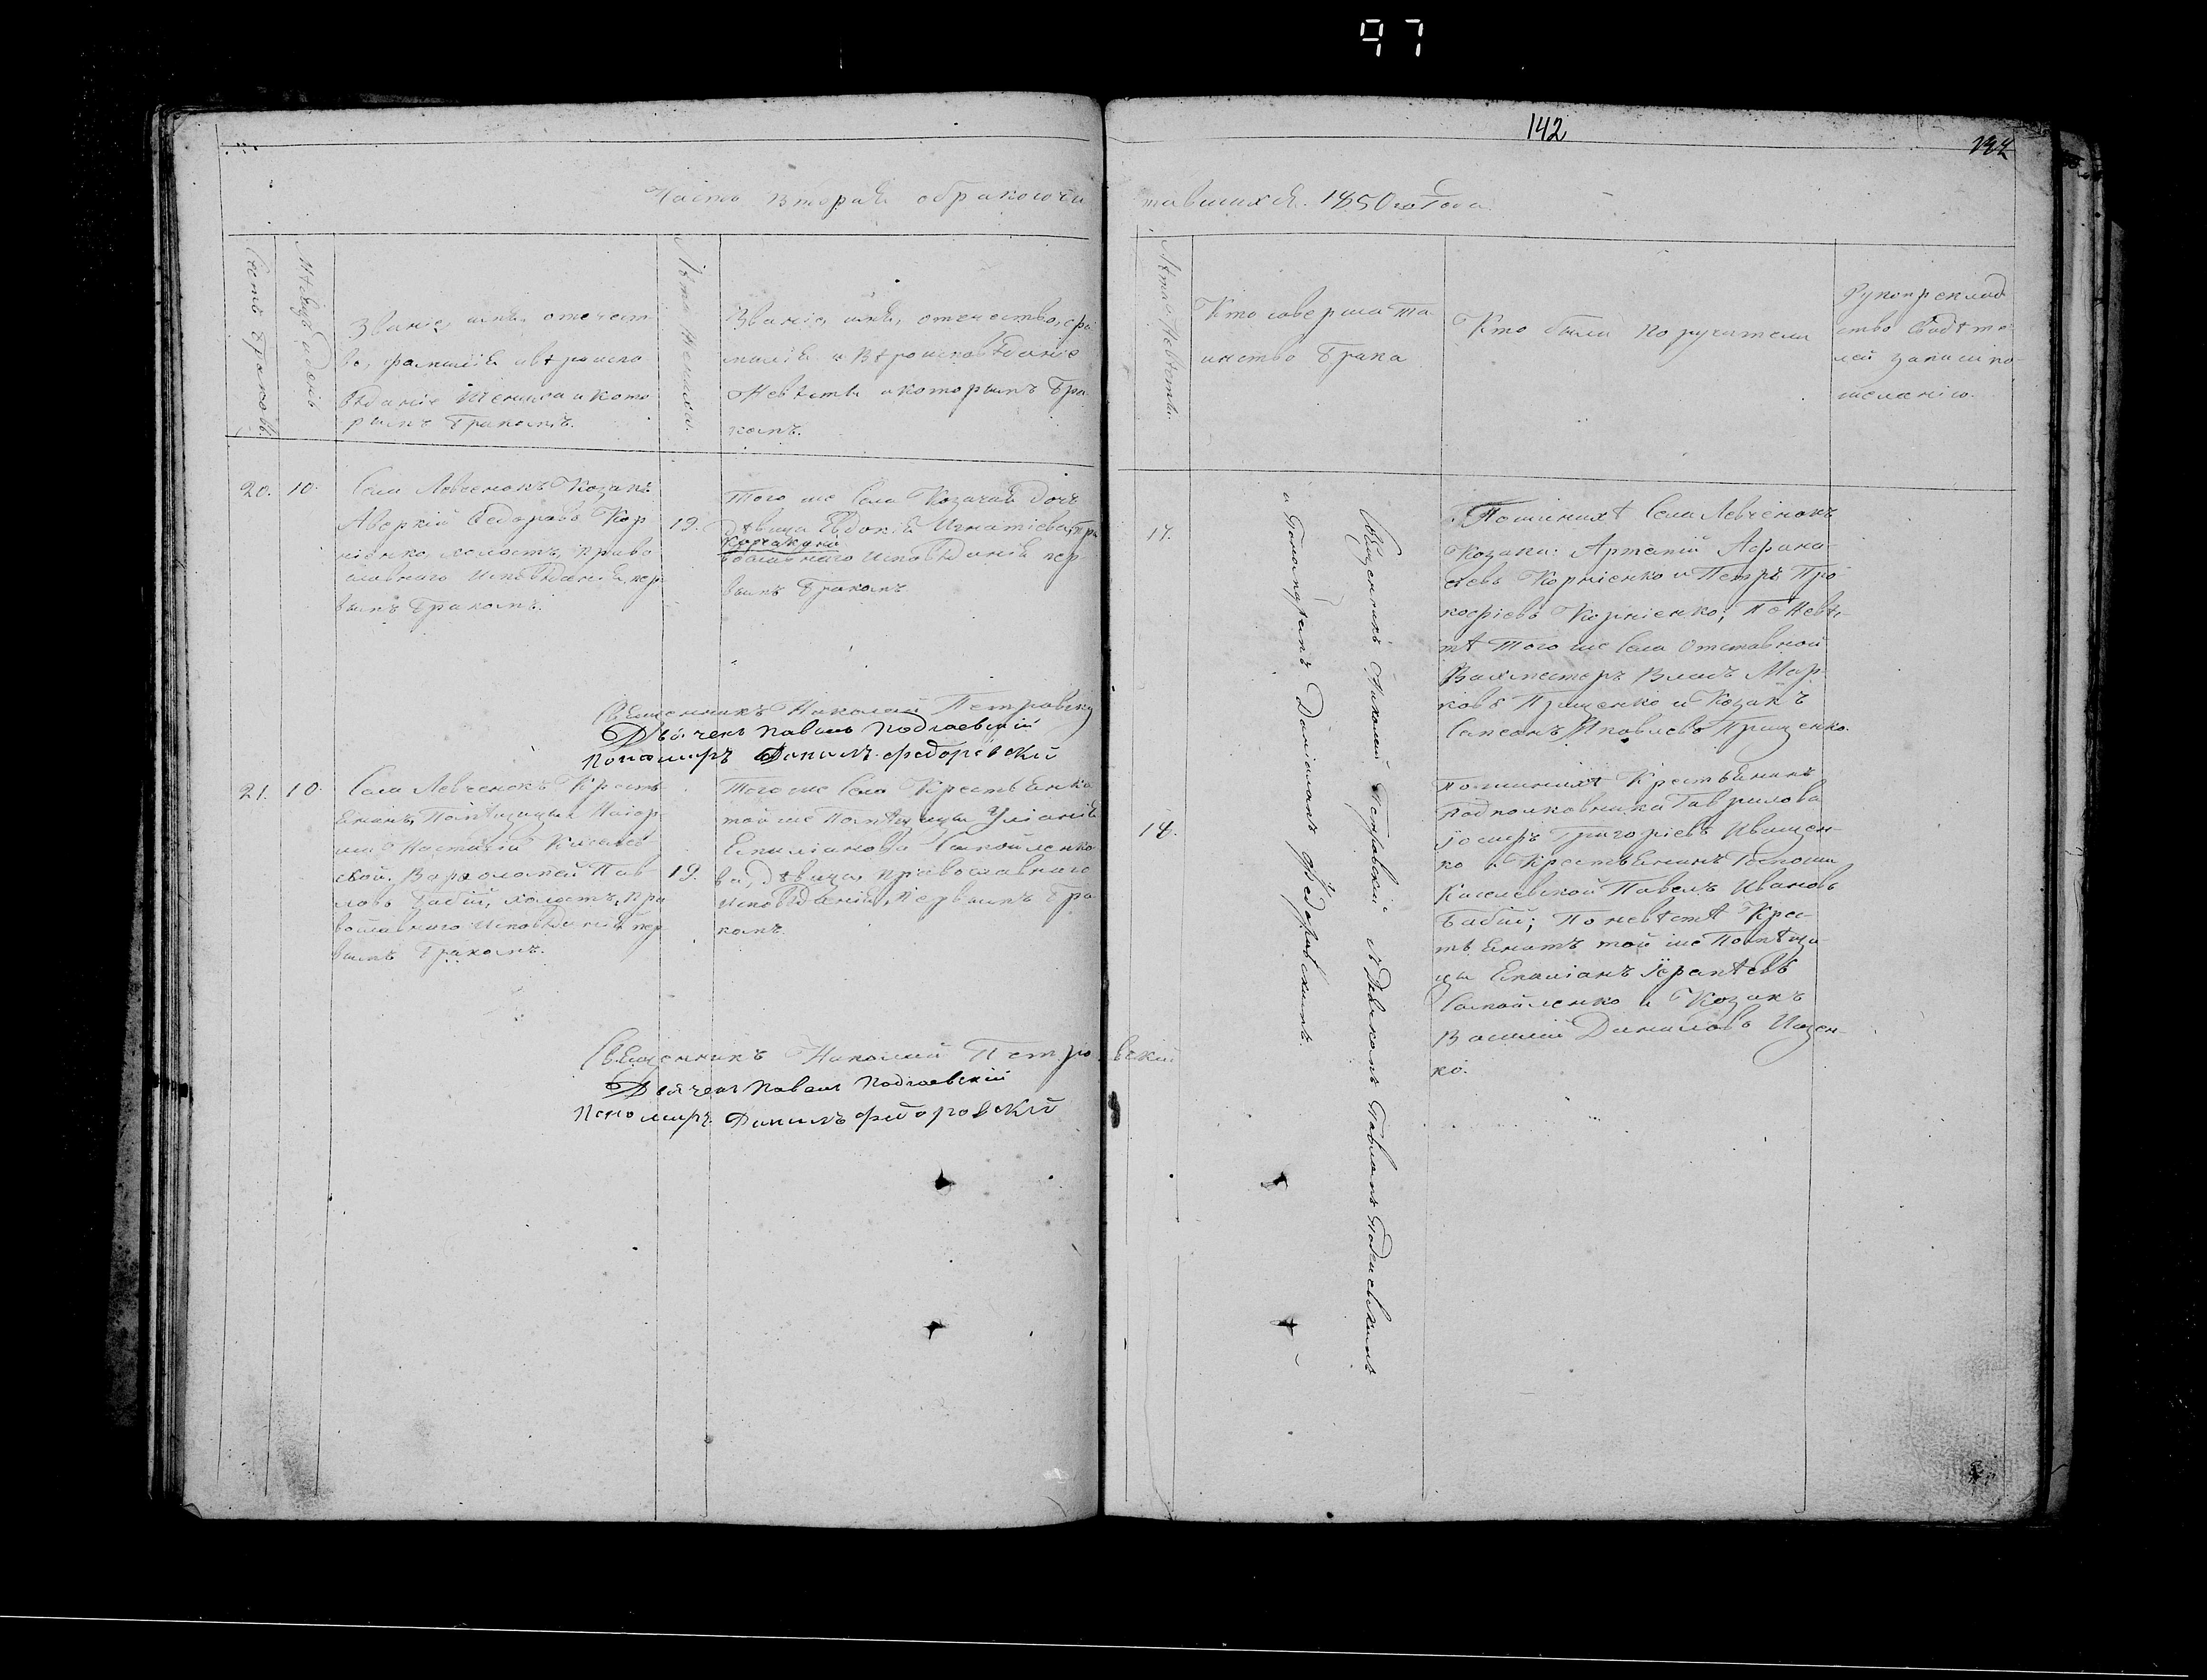 97
142
Часть вторая обракосоче
тавшихся. 1850 го Года.
Счетъ браковъ.
Мѣсяцъ и день
Званіе, имя, отечест-
во, фамилія и вѣроиспо-
вѣданіе Жениха и кото
рымъ бракомъ.
Лѣта Жениха.
Званіе, имя, отечество, фа
милія и Вѣроисповѣданіе
Невѣсты и которымъ Бра
комъ.
Лѣта Невѣсты.
Кто совершалъ та
инство брака
Кто были поручители
Рукоприклад
ство свидѣте
лей записи по-
желанію.
20. 10.
Села Левченокъ Козакъ
Аверкій Федоровъ Кор
ніенко, холостъ, право
славнаго исповѣданія, пер
вымъ бракомъ.
19.
Того же Села Козачая дочь
дѣвица Евдокія Игнатіева, пра
вославнаго исповѣданія пер
вымъ бракомъ
17.
Священникъ Николай Петровскій съ Дьячкомъ Павломъ Подгаевскимъ
и Пономаремъ Даніиломъ Федоровскимъ.
По женихѣ Села Левченокъ
Козаки: Артемій Афана-
сіевъ Корніенко и Петръ Про
кофіевъ Корніенко; По невѣс-
тѣ Того же Села отставной
Вахмистръ Власъ Мар-
ковъ Прищенко и Козакъ
Самсонъ Яковлевъ Прищенко.
Священникъ Николай Петровскій
Дьячекъ Павелъ Подгаевскій
Пономарь Данилъ Федоровскій
21. 10.
Села Левченокъ Кресть
янинъ Помѣщицы Маіор
ши Настасіи Киселев
ской, Варфоломей Пав
ловъ Бабій, холостъ, пра
вославнаго исповѣданія пер
вымъ бракомъ.
19.
Того же Села Крестьянка
той же Помѣщицы Уліанія
Емиліанова Самойленко
ва, дѣвица, православнаго
исповѣданія, первымъ бра
комъ.
18.
По женихѣ Крестьянинъ
Подполковника Гаврилова
Іосифъ Григоріевъ Иващен-
ко и Крестьянинъ Госпожи
Киселевской Павелъ Ивановъ
Бабій; По невѣстѣ Крес-
тьянинъ той же Помѣщи-
цы Емиліанъ Іереміевъ
Самойленко и Козакъ
Василій Даниловъ Ищен-
ко.
Священникъ Николай Петровскій
Дьячекъ Павелъ Подгаевскій
Пономарь Данилъ Федоровскій